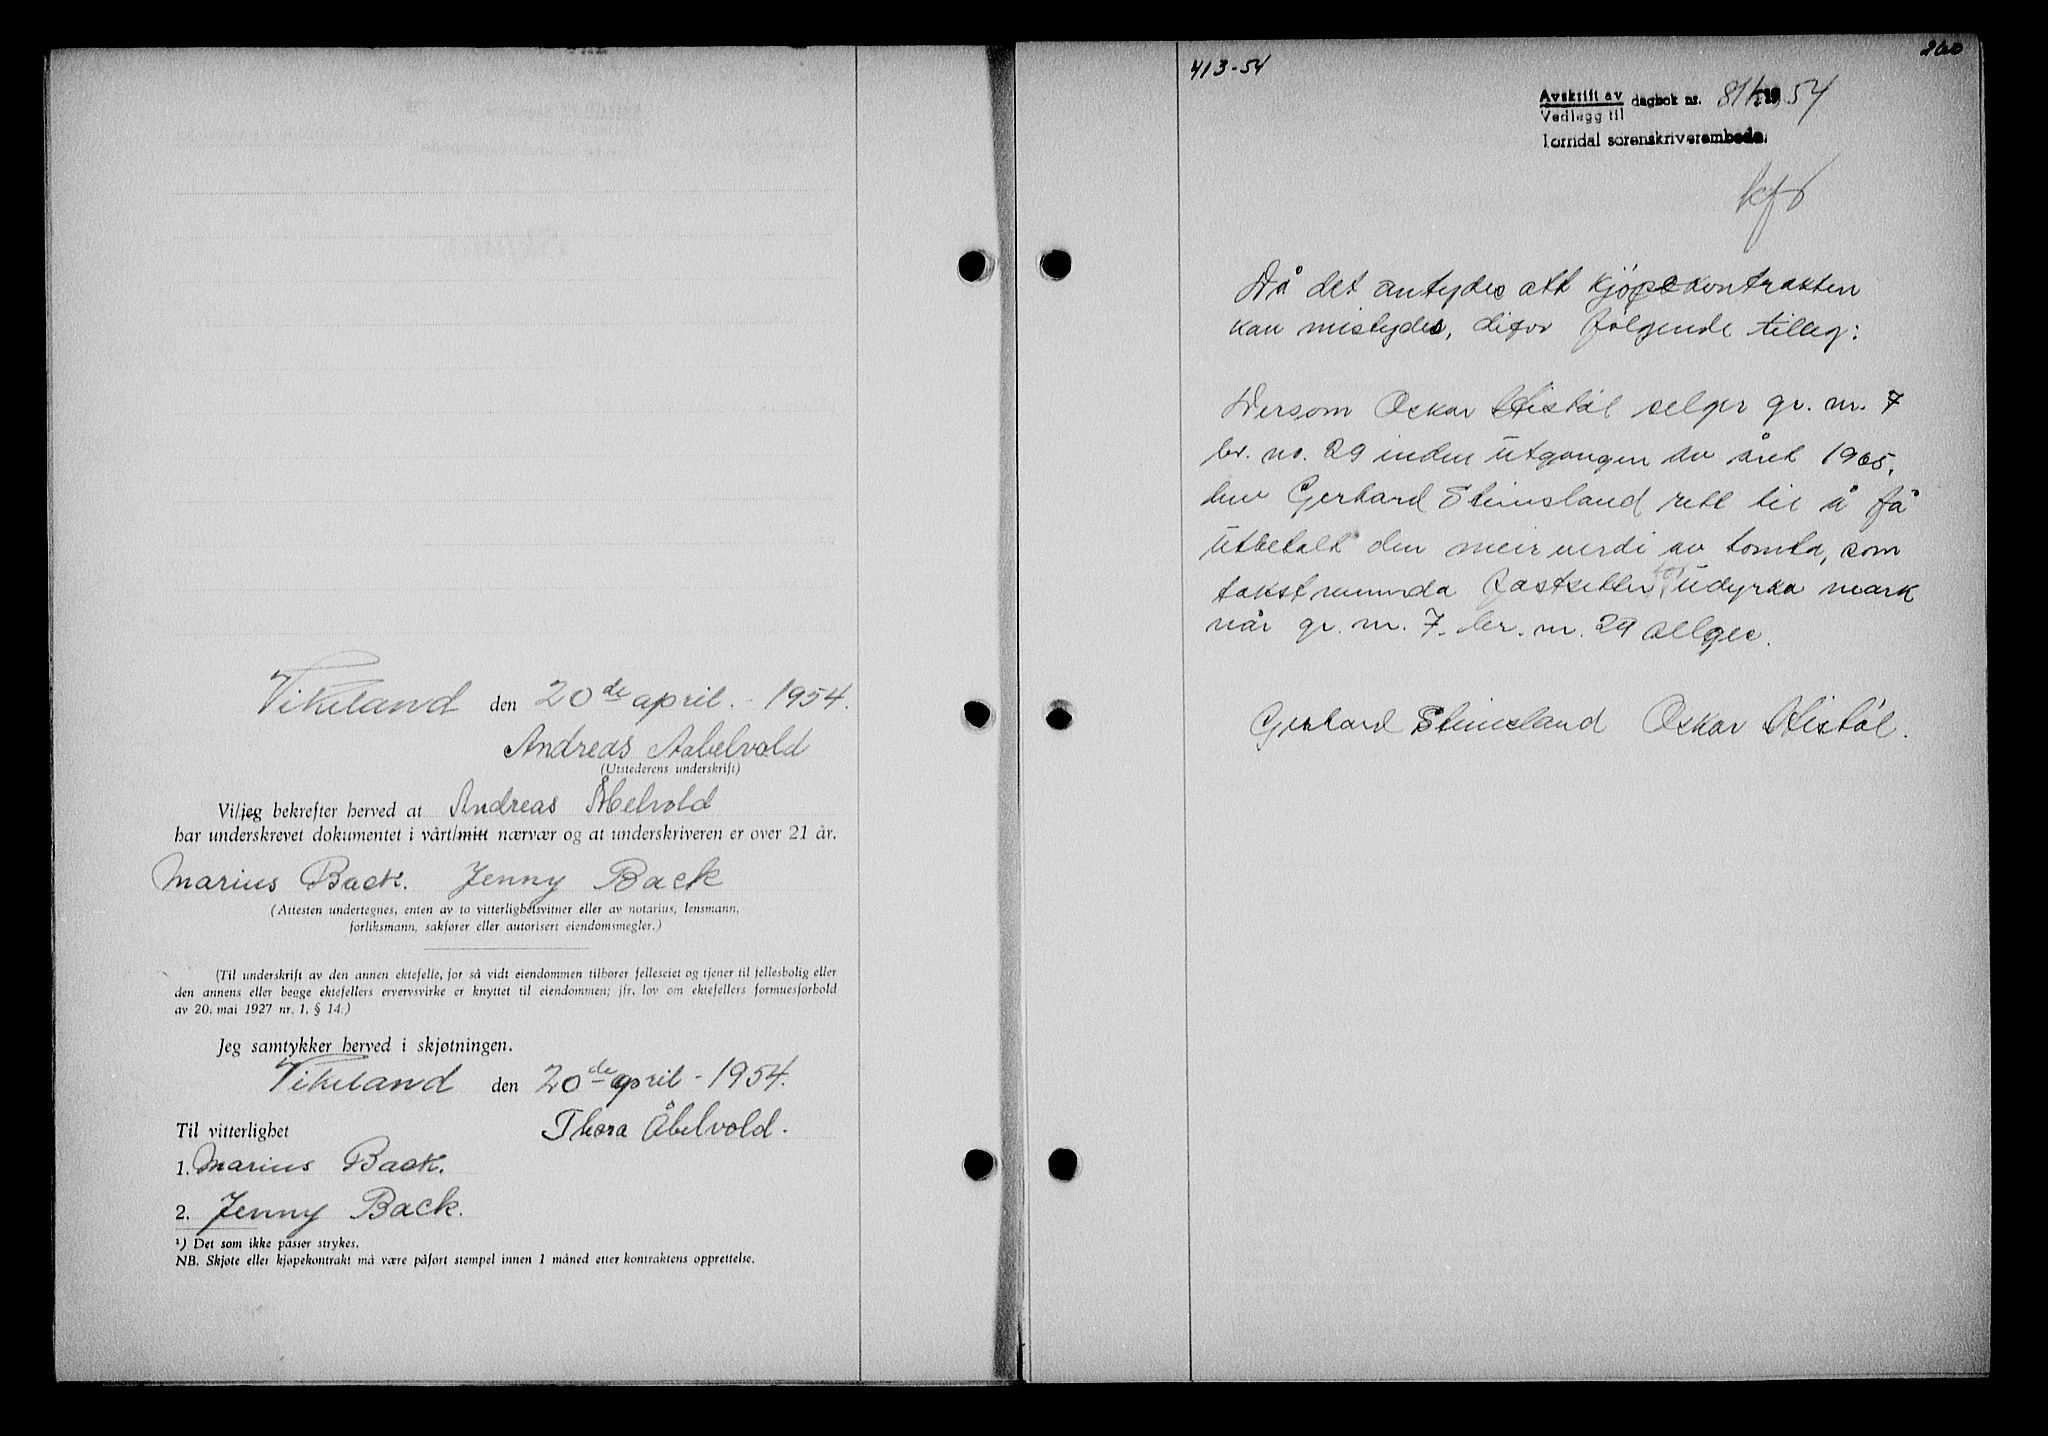 Vikeland den 20de april. - 1954.
Andreas Aabelvold
(Utstederens underskrift)
Vi/jeg bekrefter herved at Andreas Åbelvold
har underskrevet dokumentet i vårt/mitt nærvær og at underskriveren er over 21 år.
Marius Back. Jenny Back
(Attesten undertegnes, enten av to vitterlighetsvitner eller av notarius, lensmann,
forliksmann, sakfører eller autorisert eiendomsmegler.)
(Til underskrift av den annen ektefelle, for så vidt eiendommen tilhører felleseiet og tjener til fellesbolig eller
den annens eller begge ektefellers ervervsvirke er knyttet til eiendommen; jfr. lov om ektefellers formuesforhold
av 20. mai 1927 nr. 1, § 14.)
Jeg samtykker herved i skjøtningen.
Vikeland den 20de april - 1954.
Til vitterlighet Thora Åbelvold.
1. Marius Back.
2. Jenny Back.
¹) Det som ikke passer strykes.
NB. Skjøte eller kjøpekontrakt må være påført stempel innen 1 måned etter kontraktens opprettelse.
260
413-54
Avskrift av dagbok nr. 54
Vedlegg til
Torridal sorenskriverembede.
Då det antydes att kjöpekontrakten
kan mistydes, difor følgende tilleg:
Dersom Oskar Histöl selger gr. nr. 7
br. no. 29 inden utgangen av året 1965,
hev Gerhard Steinsland rett til å få
utbetalt den meirverdi av tomta, som
takstnemnda fastsetter for udyrka mark
når gr. nr. 7. br. nr. 29 selges.
Gerhard Steinsland Oskar Histöl.